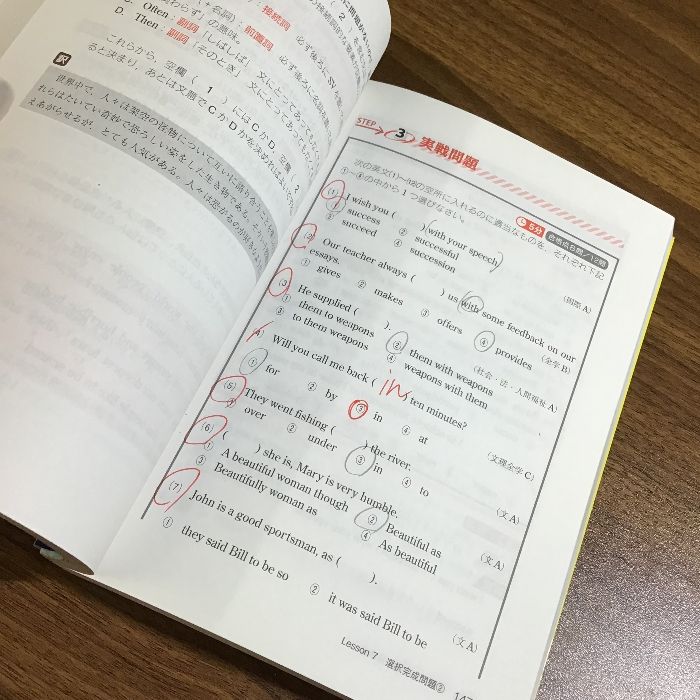 Often：副詞「しばしば」
D. Then：副詞「そのとき」
これらから，空欄（ 1 ）にはCかD，空欄 2
ると決まり，あとは文脈でCかDかを決めれば
訳
世界中で，人々は架空の怪物について互いに語り合
れらはたいてい奇妙で恐ろしい姿をした生き物である。
えあがらせるが，とても人気がある。人々は
STEP 3 実戦問題
次の英文(1)～(12)の空所に入れるのに適当なものを，それぞれ下記
①～④の中から1つ選びなさい。
5分 合格点8問／12問
(1) I wish you ( ) with your speech.
① success ② successful
③ succeed ④ succession
(周際 A)
(2) Our teacher always ( ) us with some feedback on our
essays.
① gives ② makes ③ offers ④ provides
(全学 B)
(3) He supplied ( ).
① them to weapons ② them with weapons
③ to them weapons ④ weapons with them
(社会・法・人間福祉 A)
(4) Will you call me back ( in ten minutes?
① for ② by ③ in ④ at
(文理全学 C)
(5) They went fishing ( ) the river.
① over ② under ③ in ④ to
(文 A)
(6) ( ) she is, Mary is very humble.
① A beautiful woman though ② Beautiful as
③ Beautifully woman as ④ As beautiful
(文 A)
(7) John is a good sportsman, as ( ).
① they said Bill to be so ② it was said Bill to be
(文 A)
Lesson 7 選択完成問題② 147